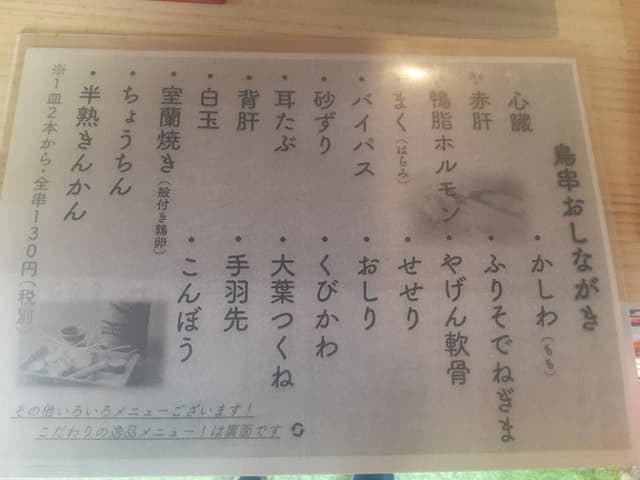 鳥串おしながき
心臓
・かしわ(もも)
・赤肝
・ふりそでねぎま
・鴨脂ホルモン
・やげん軟骨
・まく(はらみ)
・せせり
・バイパス
・おしり
・砂ずり
・くびかわ
・耳たぶ
・大葉つくね
・背肝
・手羽先
・白玉
・こんぼう
・室蘭焼き(殻付き鶉卵)
・ちょうちん
・半熟きんかん
※1皿2本から・全串130円(税別)
その他いろいろメニューございます!
こだわりの逸品メニュー!は裏面です